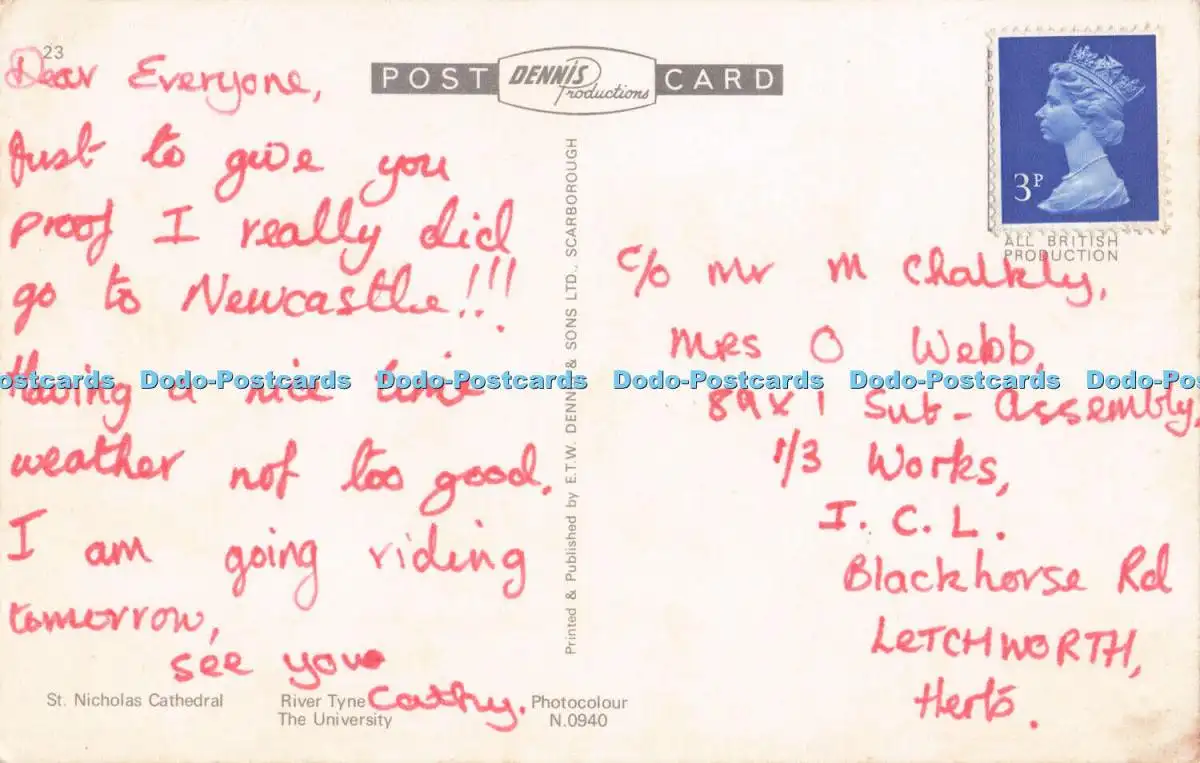 23
POST DENNIS Productions CARD
Dear Everyone,
Just to give you
proof I really did
go to Newcastle!!!
Having a nice time
weather not too good.
I am going riding
tomorrow,
see you
Cathy.
St. Nicholas Cathedral
River Tyne
The University
Photocolour
N.0940
Printed & Published by E.T.W. DENNIS & SONS LTD., SCARBOROUGH
3P
ALL BRITISH
PRODUCTION
c/o Mr M Chalkly,
MRS O Webb,
89X1 Sub-assembly,
1/3 Works,
I. C. L.
Blackhorse Rd
LETCHWORTH,
Herts.
ostcards Dodo-Postcards Dodo-Postcards Dodo-Postcards Dodo-Postcards Dodo-Po